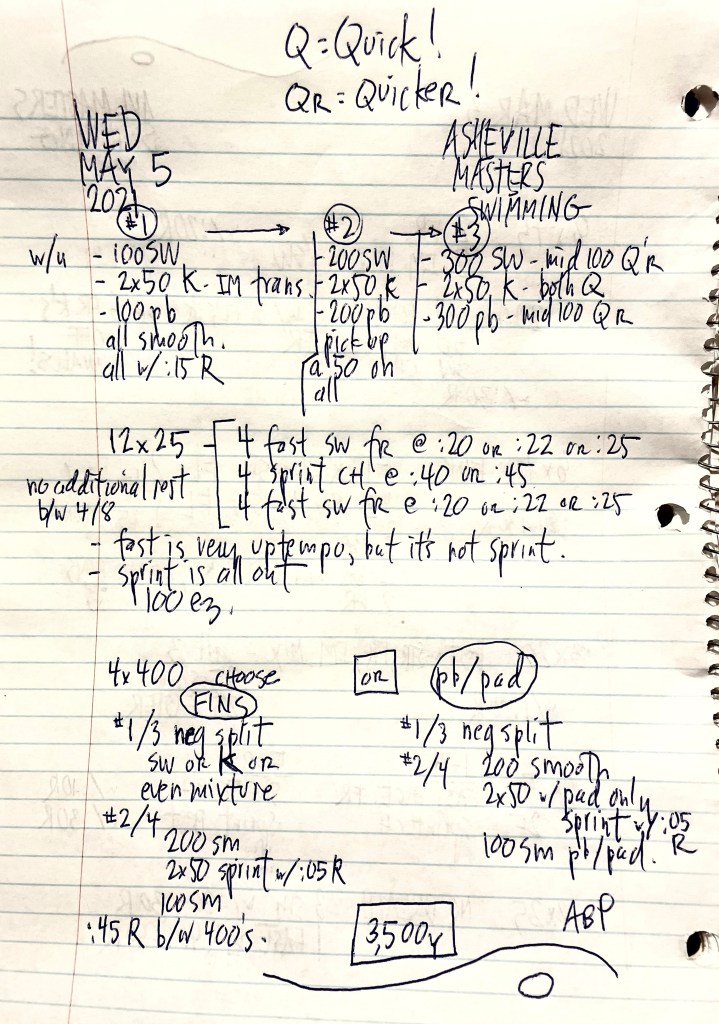 Q = Quick!
QR = Quicker!
WED
MAY 5
2021
ASHEVILLE
MASTERS
SWIMMING
#1
#2
#3
w/u
- 100 SW
- 2x50 K - IM trans.
- 100 pb
all smooth.
all w/ :15 R
- 200 SW
- 2x50 K
- 200 pb
pick up
a 50 on
all
- 300 SW - mid 100 QR
- 2x50 K - both Q
- 300 pb - mid 100 QR
12x25 - 4 fast sw fr @ :20 or :22 or :25
4 sprint CH @ :40 or :45
4 fast sw fr @ :20 or :22 or :25
no additional rest
b/w 4/8
- fast is very uptempo, but it's not sprint.
- sprint is all out
100 ez.
4x400 CHOOSE
FINS
OR
pb/pad
#1/3 neg split
sw or K or
even mixture
#2/4
200 sm
2x50 sprint w/ :05 R
100 sm
:45 R b/w 400's.
#1/3 neg split
#2/4 200 smooth
2x50 w/ pad only
sprint w/ :05
R
100 sm pb/pad.
3,500y
ABP